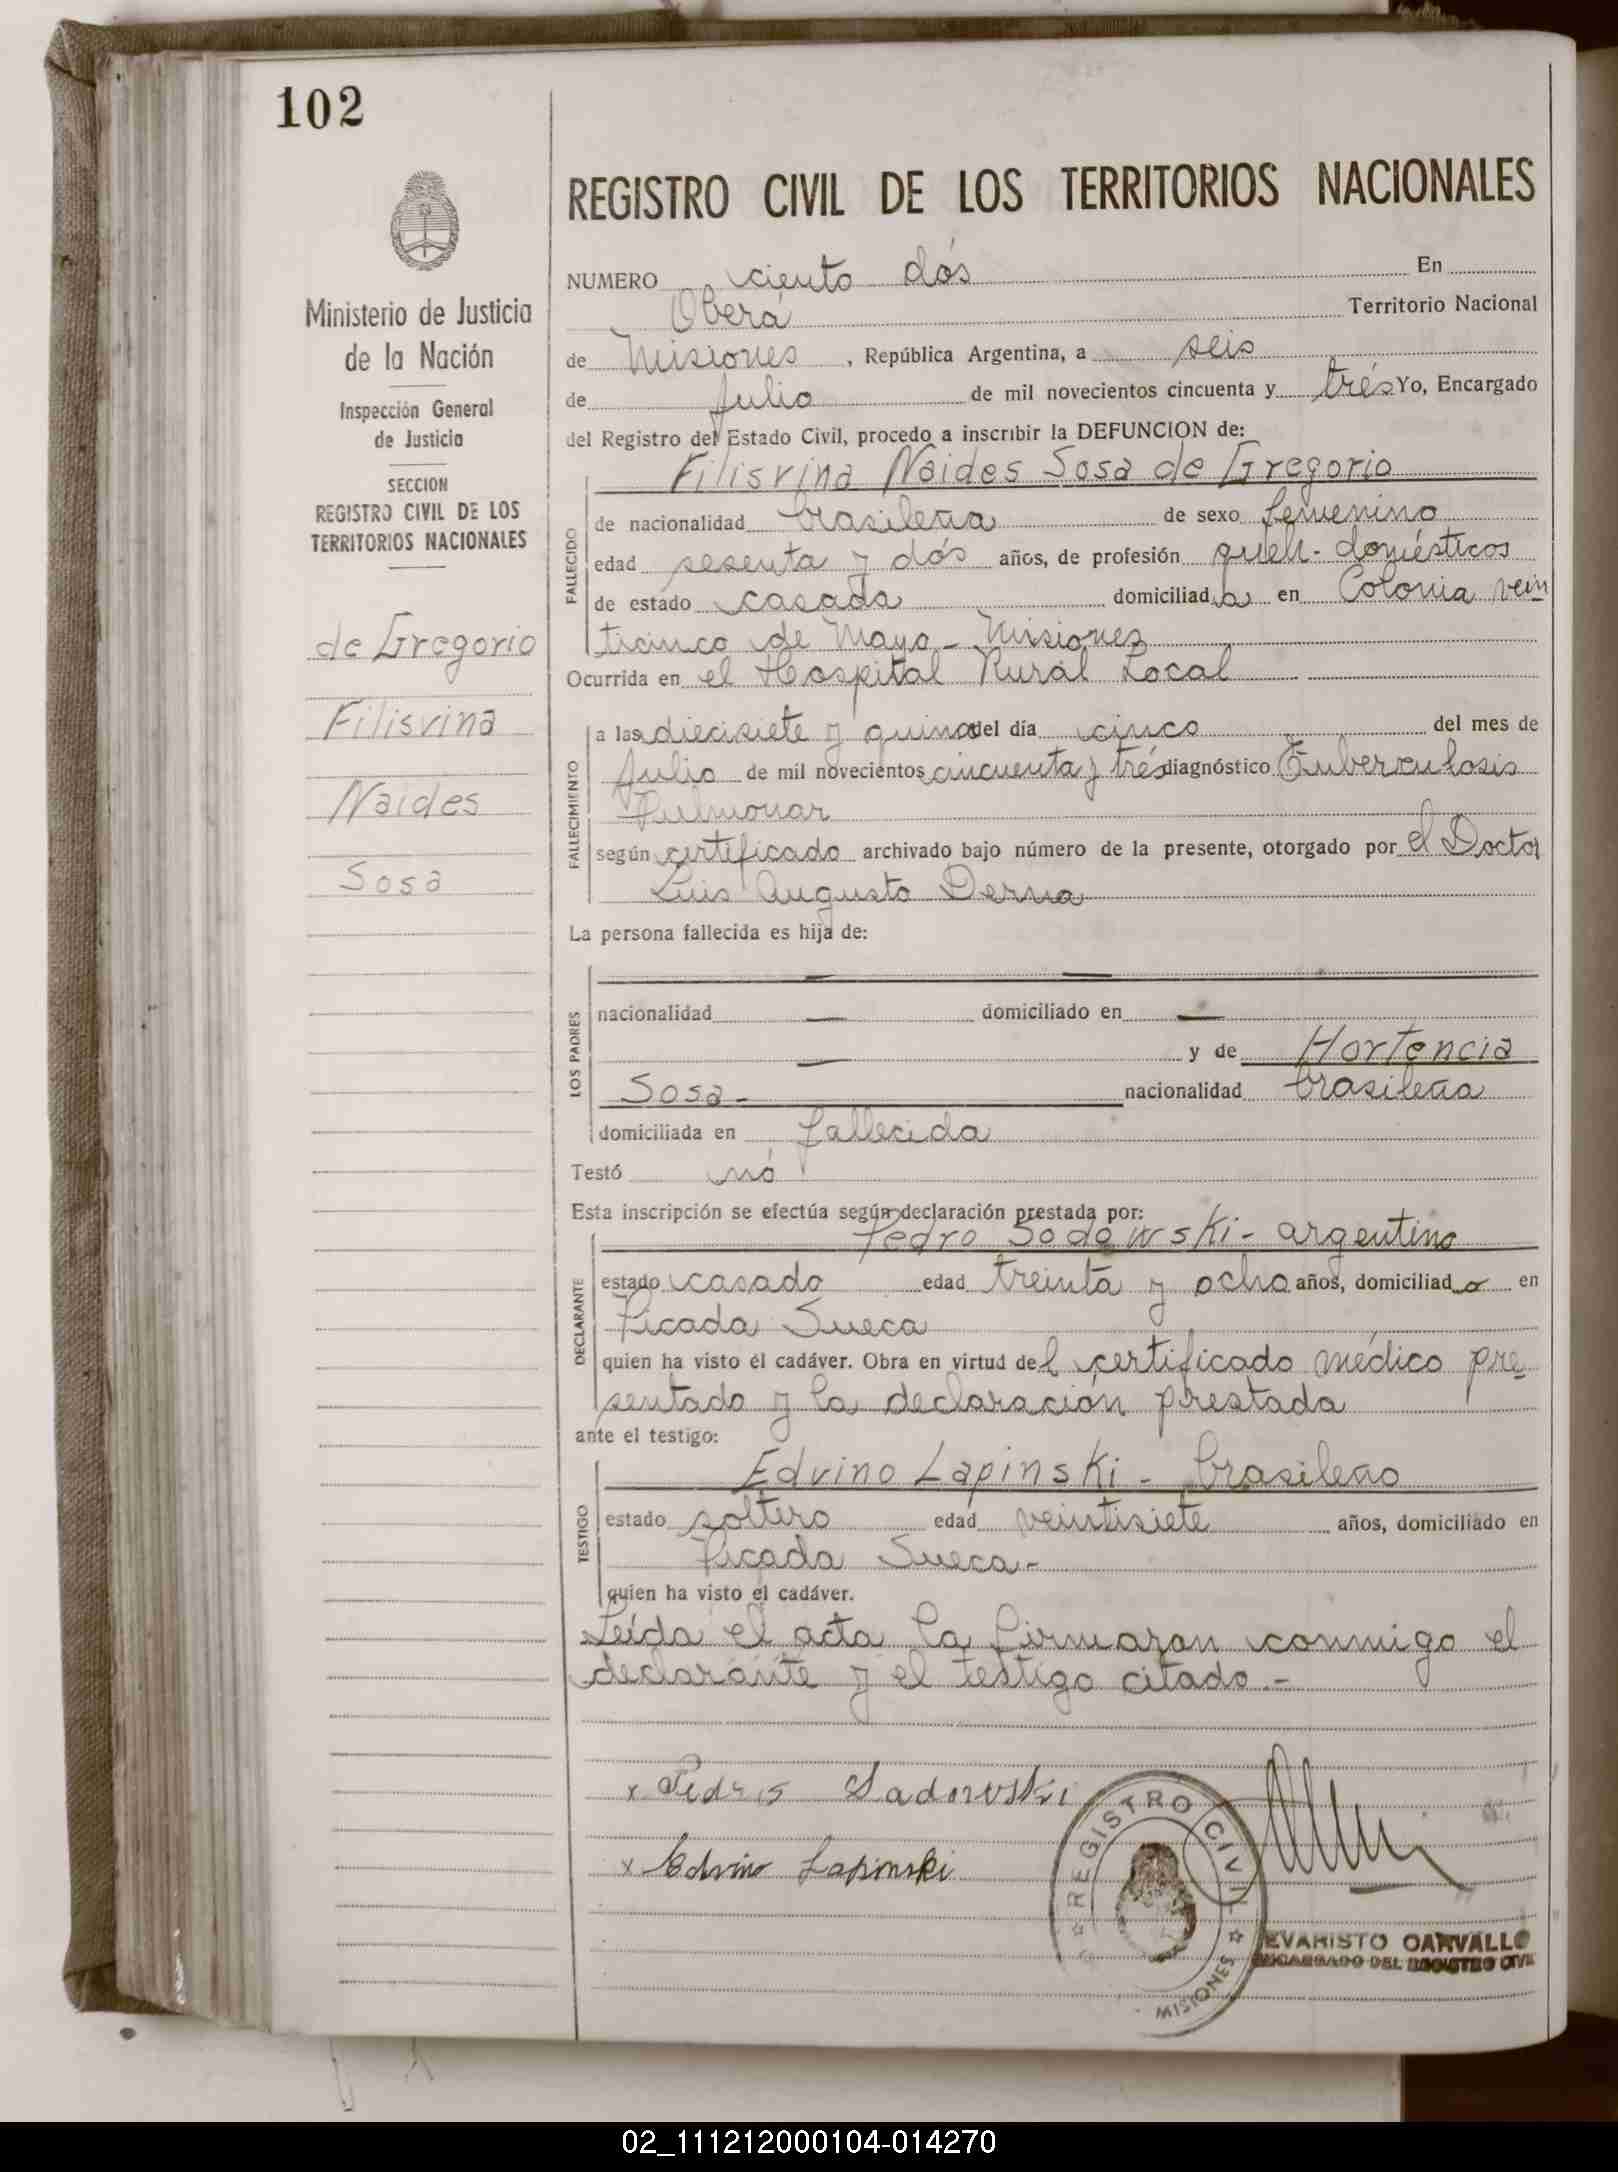 102
REGISTRO CIVIL DE LOS TERRITORIOS NACIONALES
Ministerio de Justicia
de la Nación
Inspección General
de Justicia
SECCION
REGISTRO CIVIL DE LOS
TERRITORIOS NACIONALES
de Gregorio
Filisvina
Naides
Sosa
NUMERO ciento dós En
Oberá Territorio Nacional
de Misiones, República Argentina, a seis
de Julio de mil novecientos cincuenta y trés Yo, Encargado
del Registro del Estado Civil, procedo a inscribir la DEFUNCION de:
Filisvina Naides Sosa de Gregorio
FALLECIDO
de nacionalidad brasileña de sexo femenino
edad sesenta y dós años, de profesión queh. domésticos
de estado casada domiciliad a en Colonia vein
ticinco de Mayo - Misiones
Ocurrida en el Hospital Rural Local
FALLECIMIENTO
a las diecisiete y quince del día cinco del mes de
Julio de mil novecientos cincuenta y trés diagnóstico Tuberculosis
Pulmonar
según certificado archivado bajo número de la presente, otorgado por el Doctor
Luis Augusto Derna
La persona fallecida es hija de:
LOS PADRES
— —
nacionalidad — domiciliado en —
— y de Hortencia
Sosa - nacionalidad brasileña
domiciliada en fallecida
Testó nó
Esta inscripción se efectúa según declaración prestada por:
DECLARANTE
Pedro Sodowski - argentino
estado casado edad treinta y ocho años, domiciliad o en
Picada Sueca
quien ha visto el cadáver. Obra en virtud de l certificado médico pre-
sentado y la declaración prestada
ante el testigo:
TESTIGO
Edvino Lapinski - brasileño
estado soltero edad veintisiete años, domiciliado en
Picada Sueca -
quien ha visto el cadáver.
Leída el acta la firmaron conmigo el
declarante y el testigo citado. -
x Pedro Sadowski
x Edvino Lapinski
REGISTRO CIVIL
MISIONES
EVARISTO CARVALLO
ENCARGADO DEL REGISTRO CIVIL
02_111212000104-014270